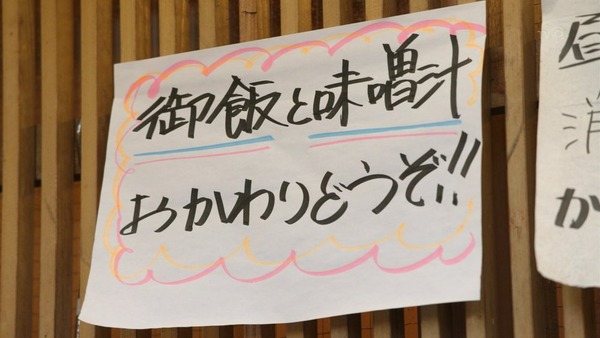 御飯と味噌汁
おかわりどうぞ!!
昼
消
か